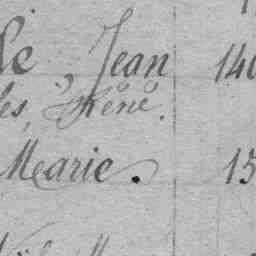 le, Jean 140
les, Réné.
Marie. 15